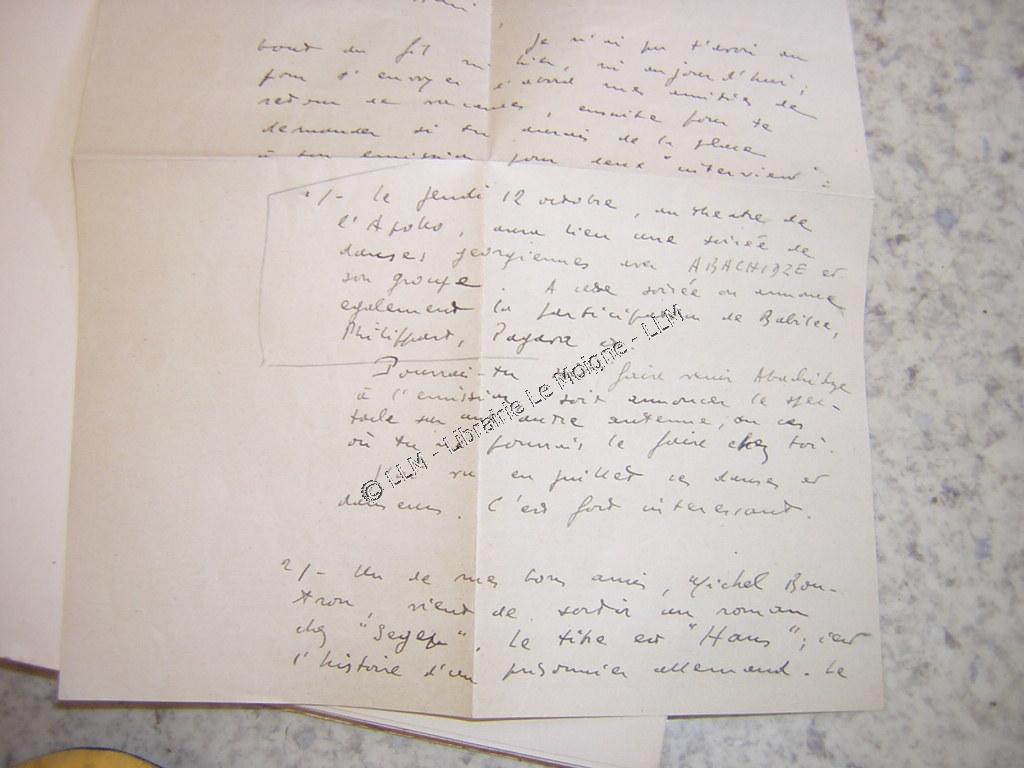 je n'ai pu t'avoir au
bout du fil ni hier, ni aujourd'hui,
pour t'envoyer d'abord mes amitiés de
retour de vacances, ensuite pour te
demander si tu aurais de la place
à ton émission pour deux "interview":
1/- Le jeudi 12 octobre, au théâtre de
l'Apollo, aura lieu une soirée de
danses georgiennes avec ABACHIDZE et
son groupe. A cette soirée on annonce
egalement la participation de Babilée,
Philippart,
Pourrai-tu faire venir Abachidze
à l'emission soit annoncer le spec-
tacle sur une autre antenne, au cas
où tu pourrais le faire chez toi.
vu en juillet ces danses et
danseurs. C'est fort interessant.
2/- Un de mes bons amis, Michel Bou-
tron, vient de sortir un roman
chez "Segep", le titre est "Hans"; c'est
l'histoire d'un prisonnier allemand. Le
© LLM - Librairie Le Moigne - LLM